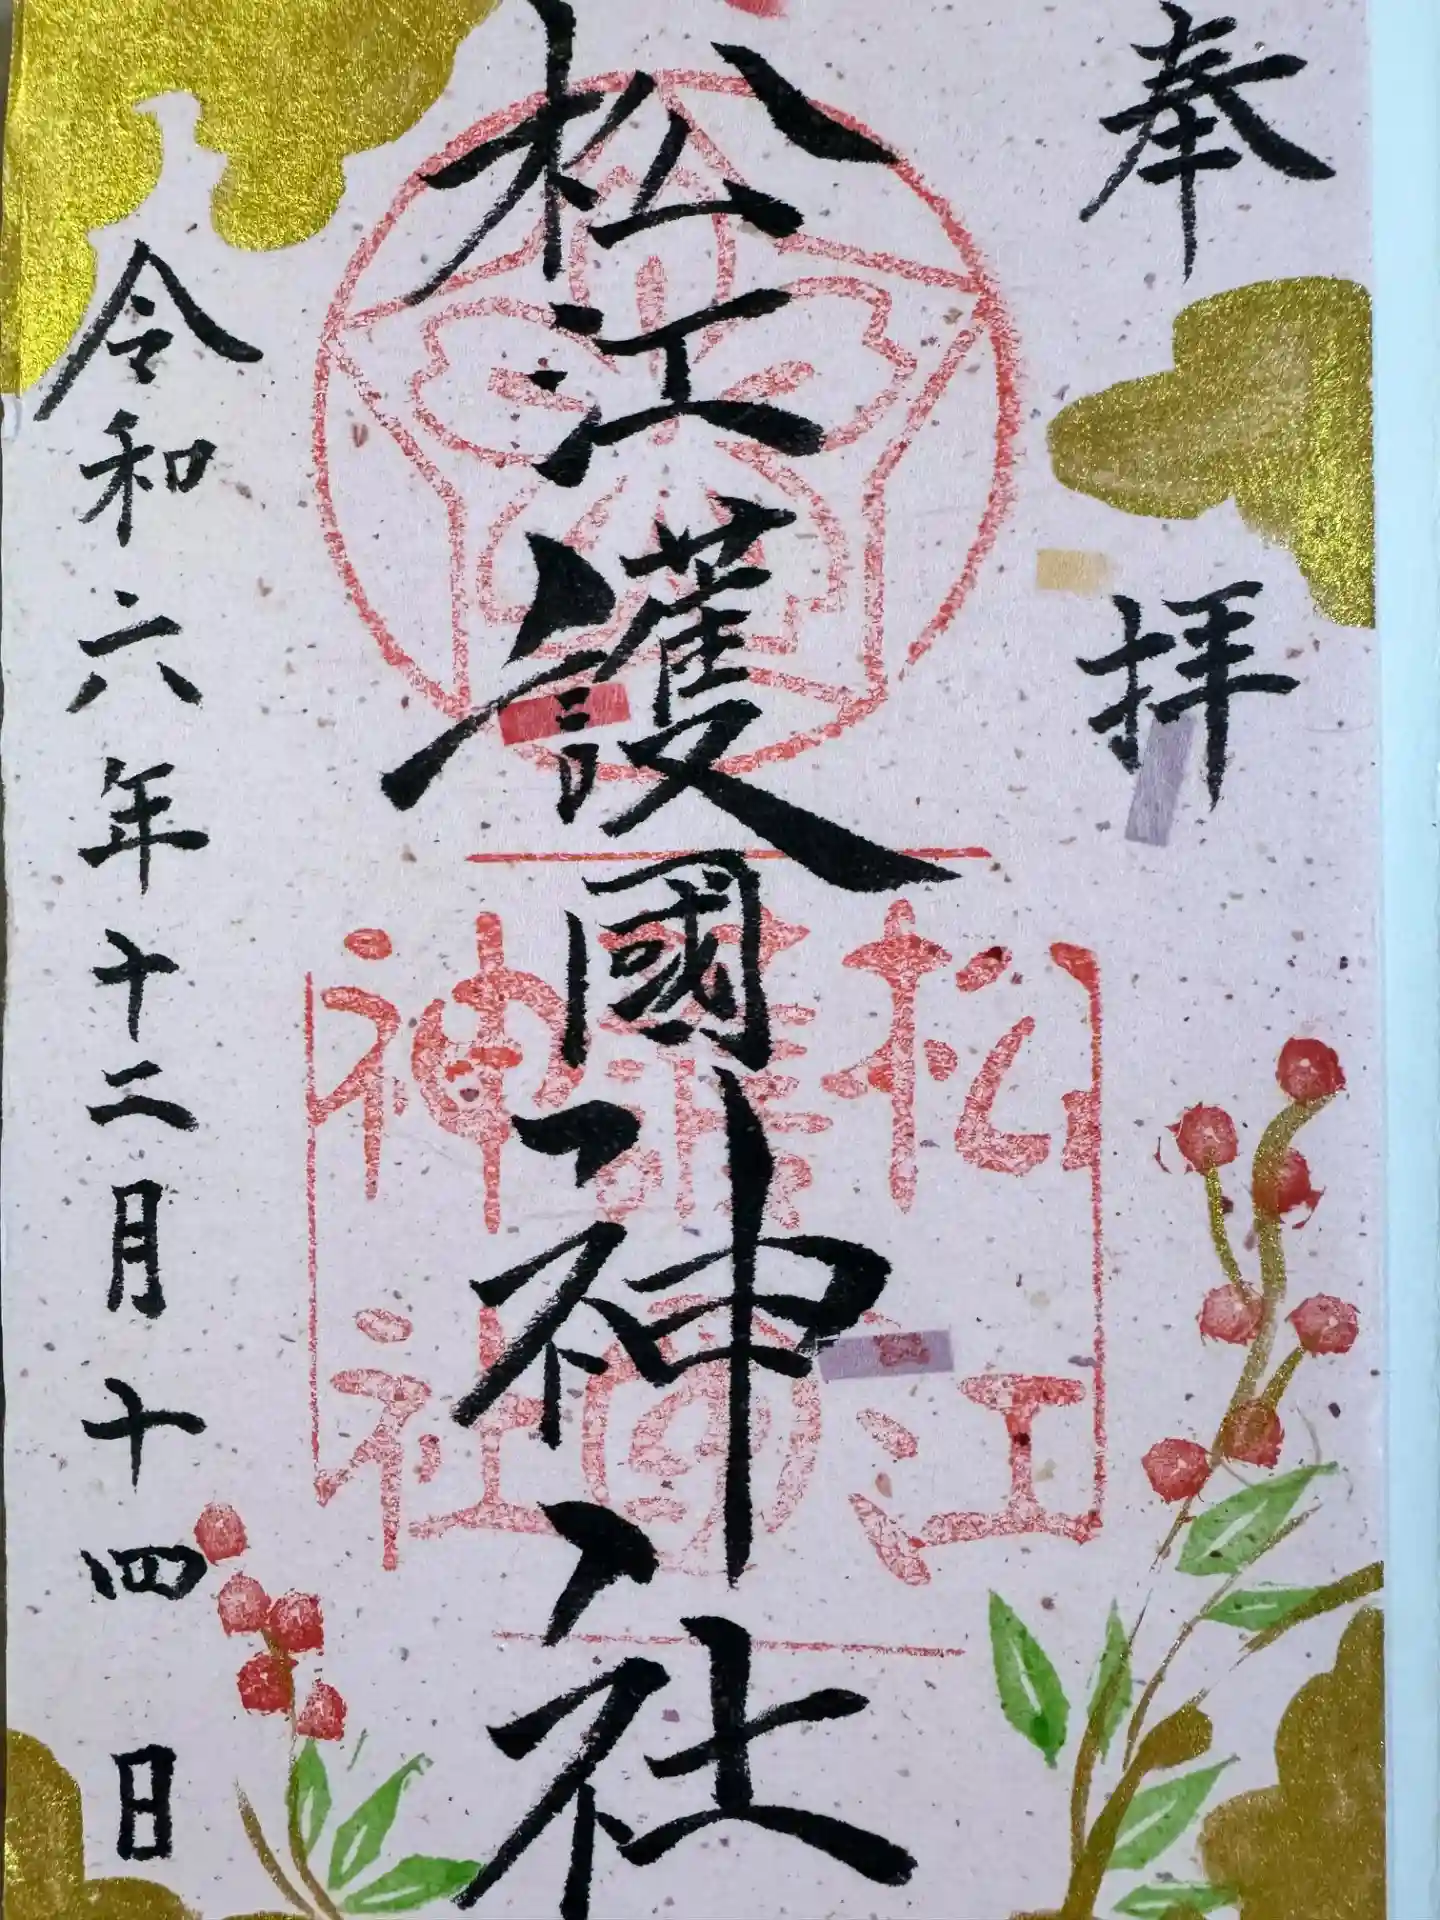 奉拝
松江護國神社
令和六年十二月十四日
松江
護國
神社